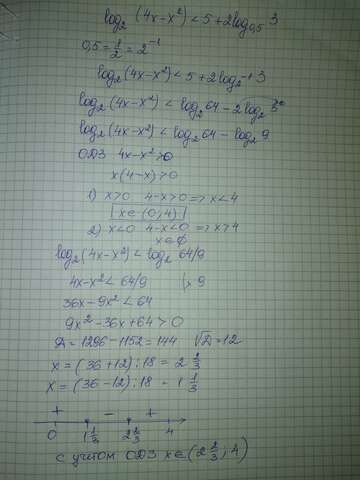 log₂ (4x-x²) < 5 + 2log₀,₅ 3
0,5 = 1/2 = 2⁻¹
log₂(4x-x²) < 5 + 2log₂-¹ 3
log₂(4x-x²) < log₂ 64 - 2log₂ 3
log₂(4x-x²) < log₂ 64 - log₂ 9
ОДЗ 4x-x²>0
x(4-x)>0
1) x>0 4-x>0 => x<4
x∈(0;4)
2) x<0 4-x<0 => x>4
x∈∅
log₂(4x-x²) < log₂ 64/9
4x-x² < 64/9 | · 9
36x-9x² < 64
9x²-36x+64>0
D = 1296-1152=144 √D=12
x = (36+12):18 = 2 2/3
x = (36-12):18 = 1 1/3
+ - +
0 1 1/3 2 2/3 4
с учетом ОДЗ x∈(2 2/3; 4)